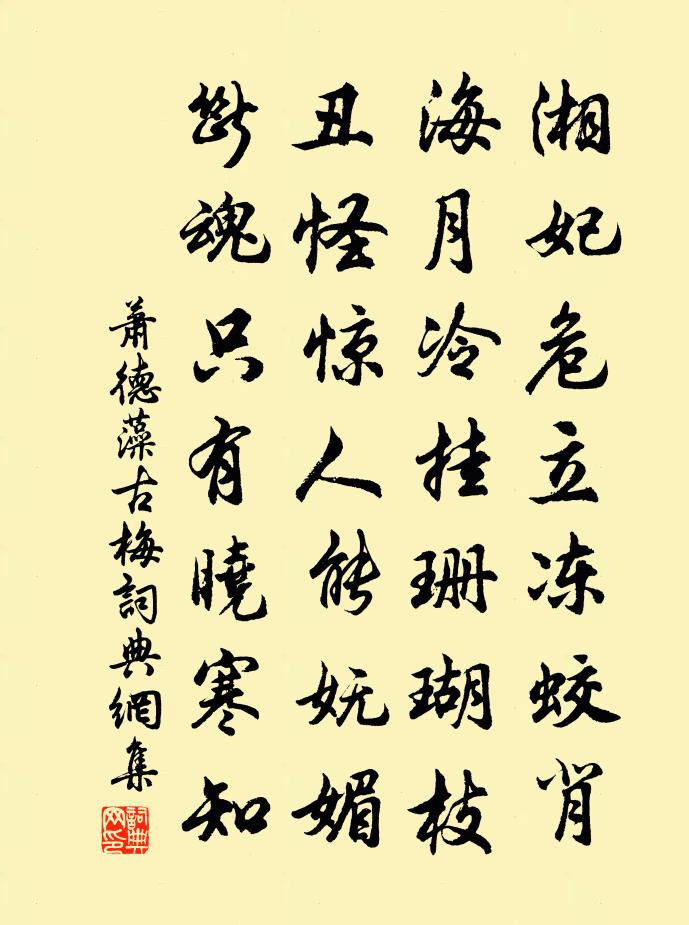 湘妃危立冻蛟背
海月冷挂珊瑚枝
丑怪惊人能妩媚
斷魂只有曉寒知
蕭德藻古梅詞典網集
詞典网印